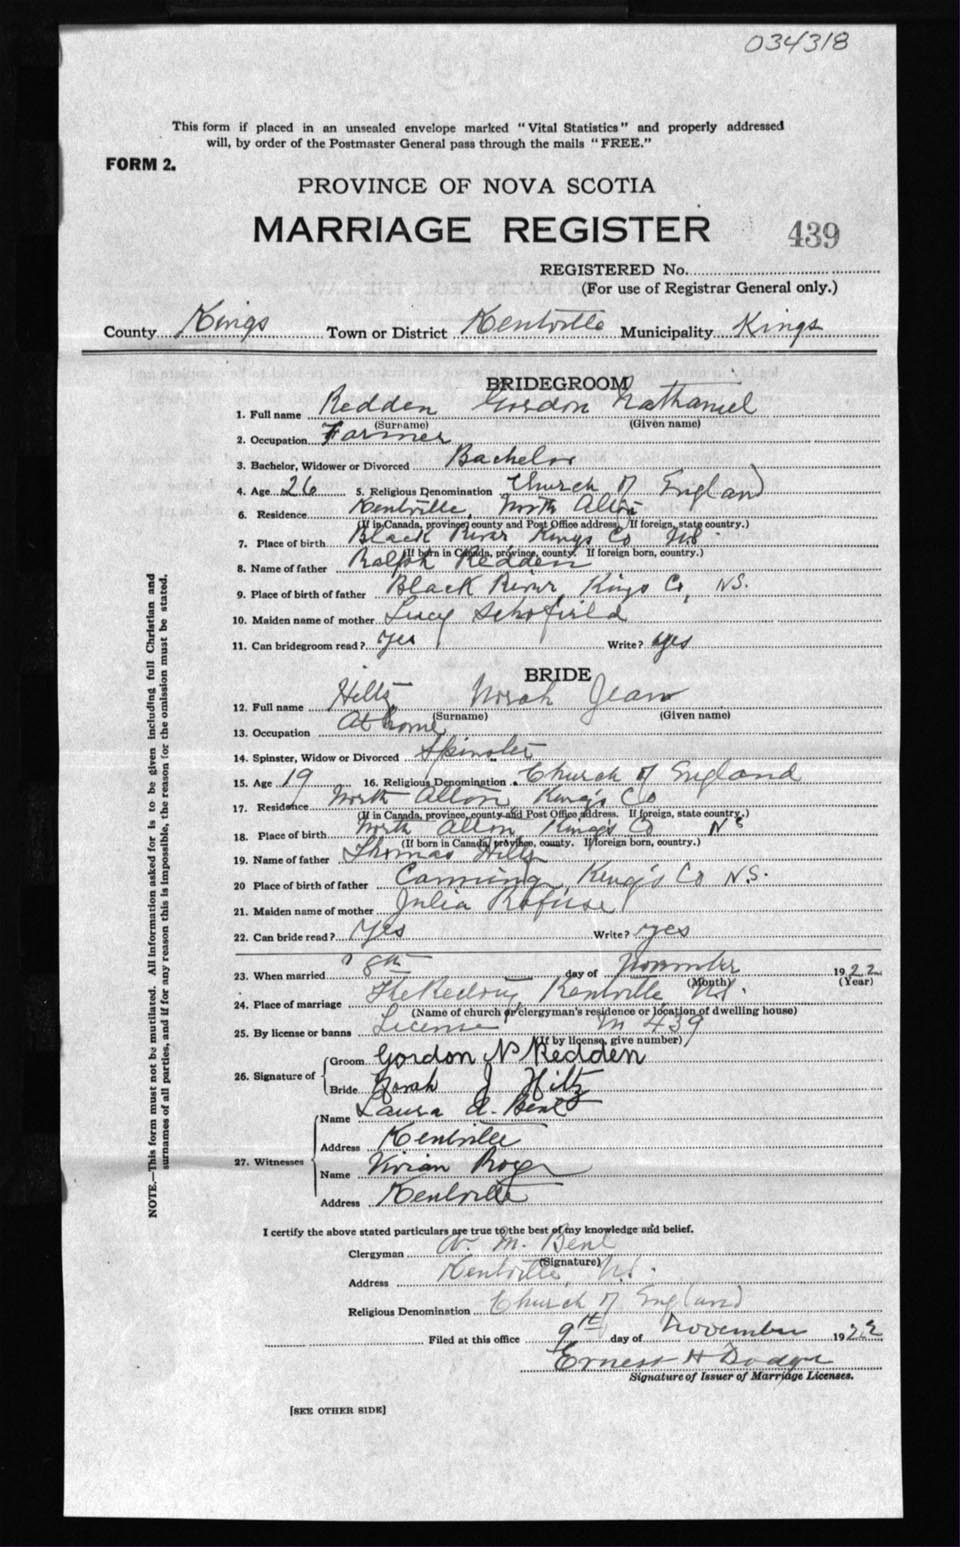 034318
This form if placed in an unsealed envelope marked "Vital Statistics" and properly addressed
will, by order of the Postmaster General pass through the mails "FREE."
FORM 2.
PROVINCE OF NOVA SCOTIA
MARRIAGE REGISTER 439
REGISTERED No.
(For use of Registrar General only.)
County Kings Town or District Kentville Municipality Kings
BRIDEGROOM
1. Full name Redden Gordon Nathaniel
(Surname) (Given name)
2. Occupation Farmer
3. Bachelor, Widower or Divorced Bachelor
4. Age 26 5. Religious Denomination Church of England
6. Residence Kentville, North Alton
(If in Canada, province, county and Post Office address. If foreign, state country.)
7. Place of birth Black River Kings Co NS
(If born in Canada, province, county. If foreign born, country.)
8. Name of father Ralph Redden
9. Place of birth of father Black River, Kings Co, NS.
10. Maiden name of mother Lucy Schofield
11. Can bridegroom read? yes Write? yes
BRIDE
12. Full name Hiltz Norah Jean
(Surname) (Given name)
13. Occupation At home
14. Spinster, Widow or Divorced Spinster
15. Age 19 16. Religious Denomination Church of England
17. Residence North Alton, King's Co
(If in Canada, province, county and Post Office address. If foreign, state country.)
18. Place of birth North Alton, King's Co NS
(If born in Canada, province, county. If foreign born, country.)
19. Name of father Thomas Hiltz
20 Place of birth of father Canning, King's Co N.S.
21. Maiden name of mother Julia Rafuse
22. Can bride read? Yes Write? yes
23. When married 8th day of November 1922
(Month) (Year)
24. Place of marriage The Rectory, Kentville, NS.
(Name of church or clergyman's residence or location of dwelling house)
25. By license or banns License M 439
(If by license, give number)
26. Signature of Groom Gordon N Redden
Bride Norah J Hiltz
27. Witnesses Name Laura A. Bent
Address Kentville
Name Vivian
Address Kentville
I certify the above stated particulars are true to the best of my knowledge and belief.
Clergyman M. Bent
(Signature)
Address Kentville, NS.
Religious Denomination Church of England
Filed at this office 9th day of November 1922
Ernest H Dodge
Signature of Issuer of Marriage Licenses.
[SEE OTHER SIDE]
NOTE.—This form must not be mutilated. All information asked for is to be given including full Christian and
surnames of all parties, and if for any reason this is impossible, the reason for the omission must be stated.